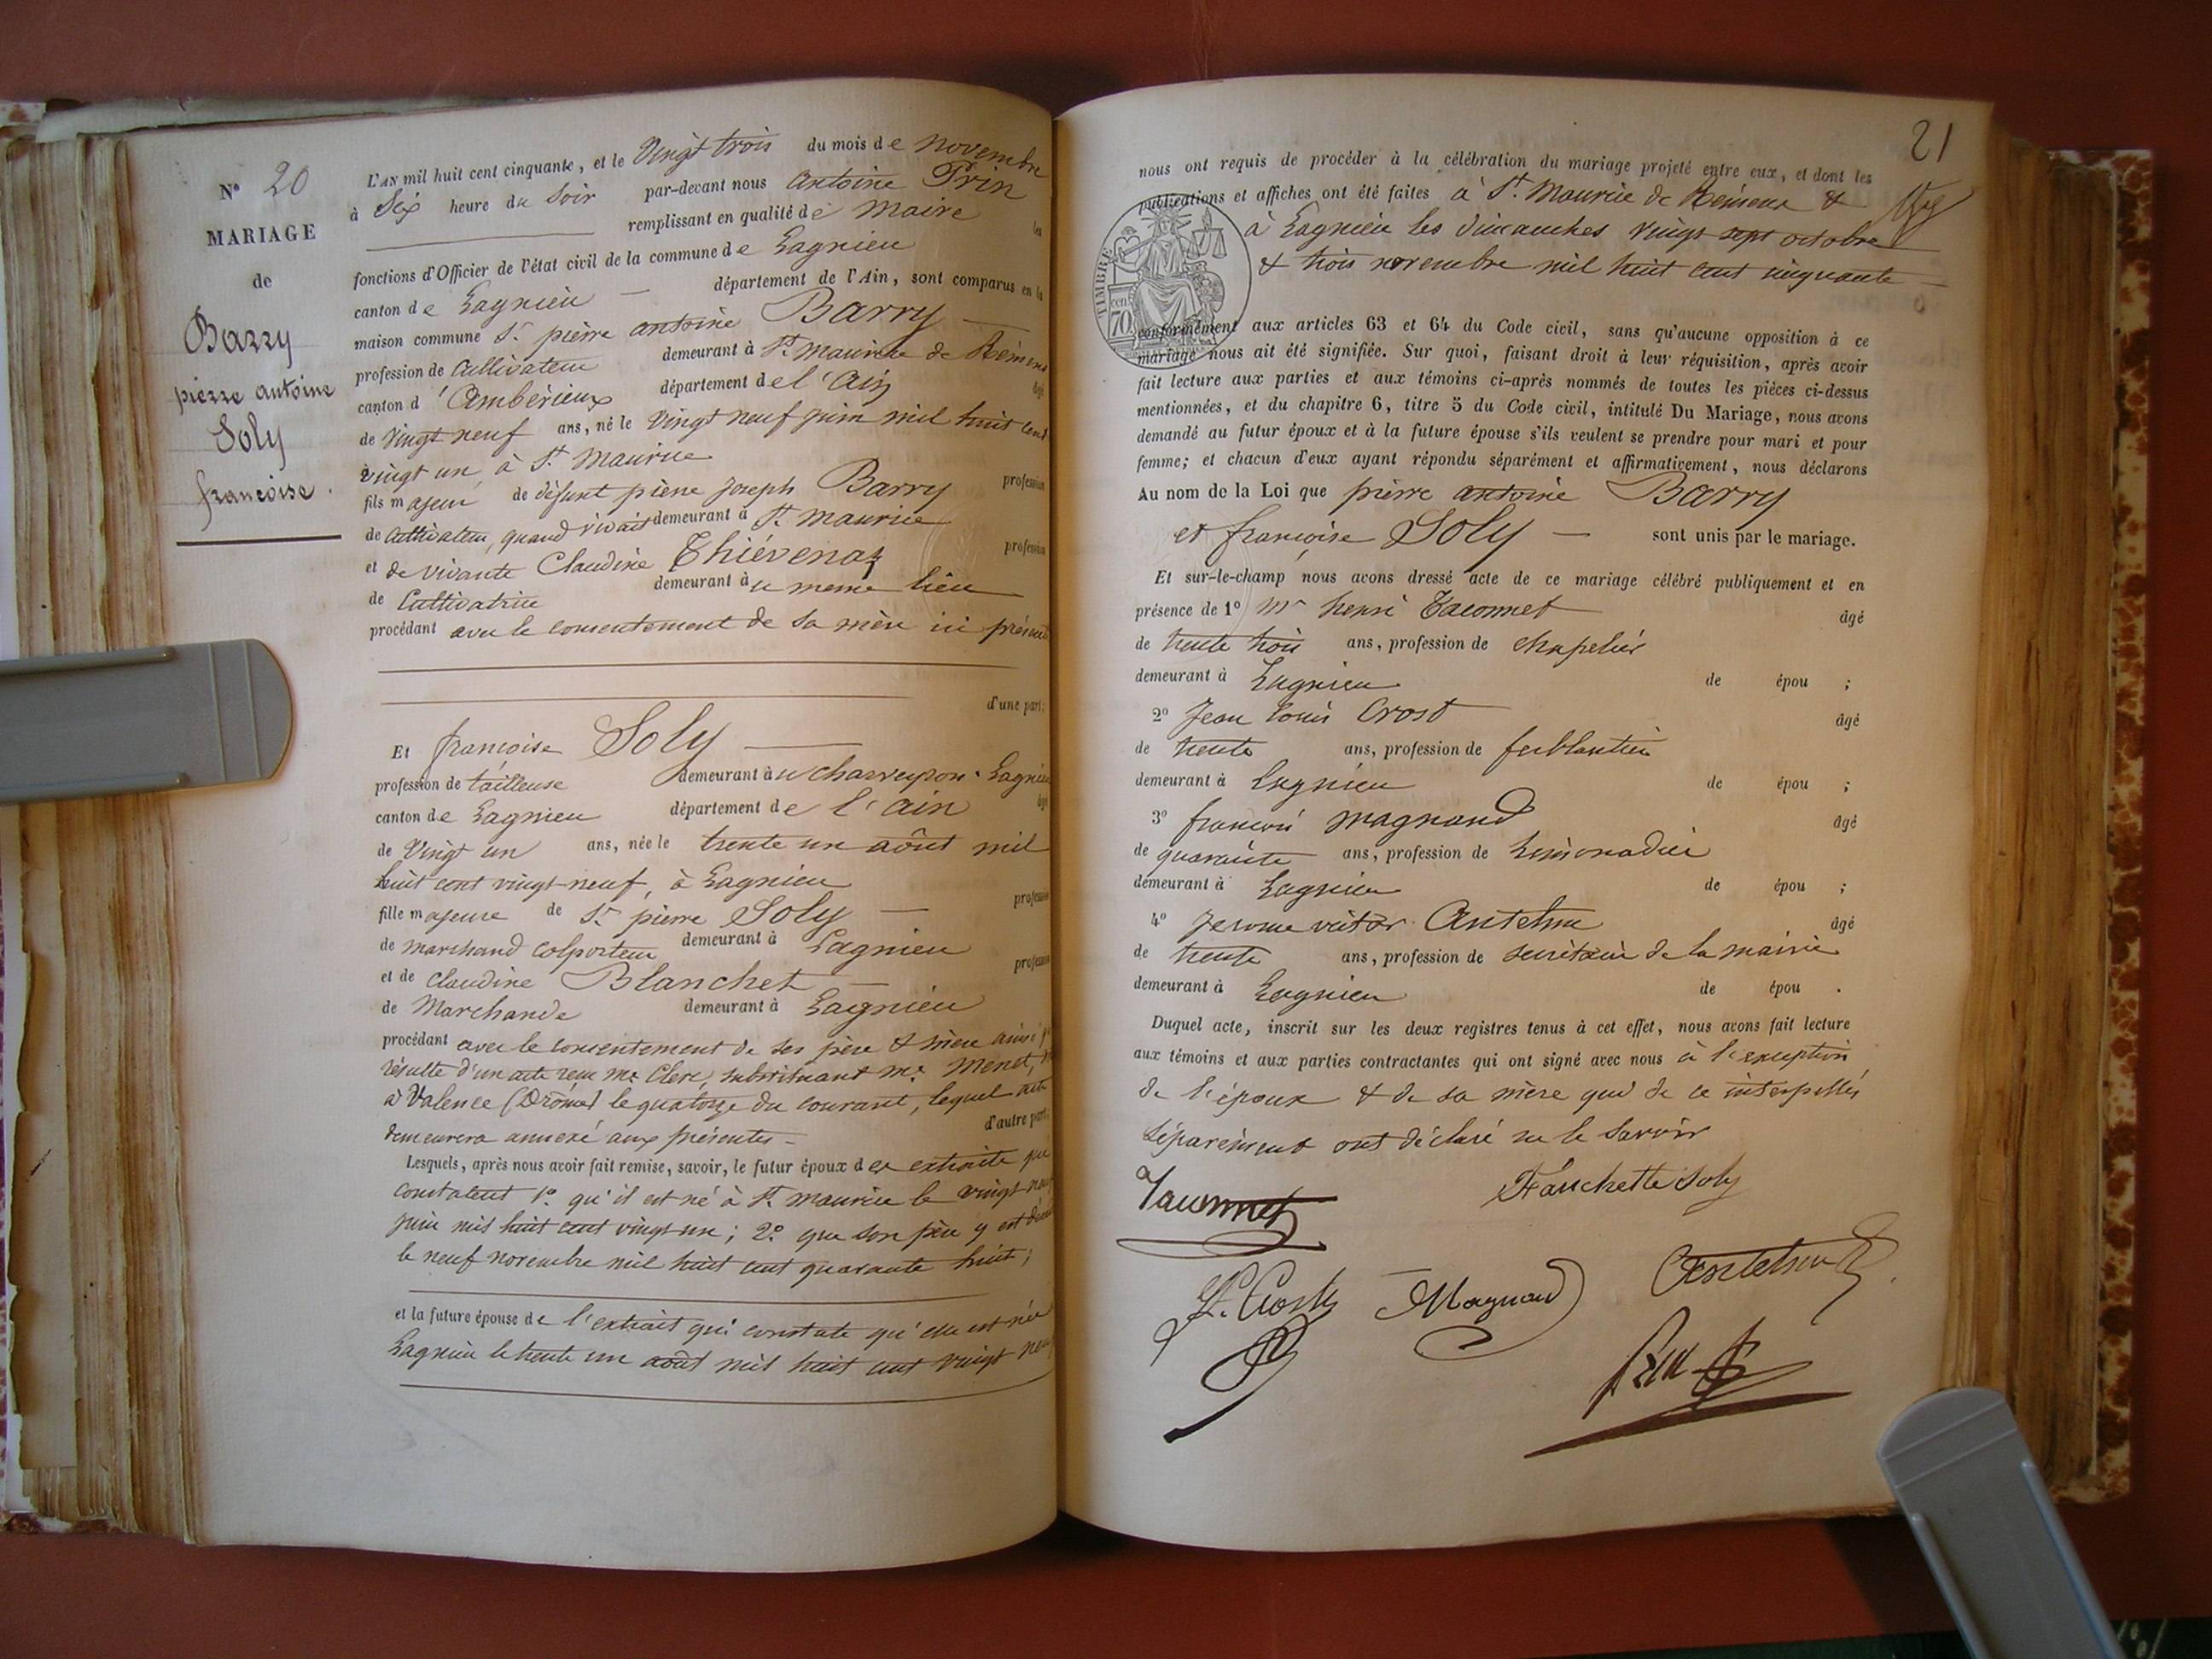 N° 20
MARIAGE
de
Barry
pierre antoine
Soly
françoise.
L'AN mil huit cent cinquante, et le Vingt trois du mois de novembre
à Six heure du Soir par-devant nous antoine Prin
remplissant en qualité de maire les
fonctions d'Officier de l'état civil de la commune de Lagnieu
canton de Lagnieu — département de l'Ain, sont comparus en la
maison commune Sr pierre antoine Barry —
profession de Cultivateur demeurant à St. maurice de Rémens
canton d'Ambérieux département de l'ain âgé
de vingt neuf ans, né le vingt neuf juin mil huit cent
vingt un, à St. maurice
fils majeur de défunt pierre Joseph Barry profession
de Cultivateur, quand vivait demeurant à St. maurice
et de vivante Claudine Thiévenaz profession
de Cultivatrice demeurant au meme lieu
procédant avec le consentement de sa mère ici présente
d'une part;
Et françoise Soly —
profession de tailleuse demeurant au charveyron. Lagnieu
canton de Lagnieu département de l'ain âgé
de Vingt un ans, née le trente un août mil
huit cent vingt-neuf, à Lagnieu
fille majeure de Sr pierre Soly — profession
de marchand colporteur demeurant à Lagnieu
et de claudine Blanchet — profession
de Marchande demeurant à Lagnieu
procédant avec le consentement de ses père & mère ainsi
résulte d'un acte reçu me Clerc, substituant me. Menet,
à Valence (Drôme) le quatorze du courant, lequel acte
demeurera annexé aux présentes — d'autre part.
Lesquels, après nous avoir fait remise, savoir, le futur époux des extraits qui
constatent 1° qu'il est né à St. maurice le vingt neuf
juin mil huit cent vingt un; 2° que son père y est décédé
le neuf novembre mil huit cent quarante huit;
et la future épouse de l'extrait qui constate qu'elle est née
Lagnieu le trente un août mil huit cent vingt neuf
21
nous ont requis de procéder à la célébration du mariage projeté entre eux, et dont les
publications et affiches ont été faites à St. Maurice de Rémens &
à Lagnieu les dimanches vingt sept octobre
& trois novembre mil huit cent cinquante —
TIMBRE
70 cen
conformément aux articles 63 et 64 du Code civil, sans qu'aucune opposition à ce
mariage nous ait été signifiée. Sur quoi, faisant droit à leur réquisition, après avoir
fait lecture aux parties et aux témoins ci-après nommés de toutes les pièces ci-dessus
mentionnées, et du chapitre 6, titre 5 du Code civil, intitulé Du Mariage, nous avons
demandé au futur époux et à la future épouse s'ils veulent se prendre pour mari et pour
femme; et chacun d'eux ayant répondu séparément et affirmativement, nous déclarons
Au nom de la Loi que pierre antoine Barry
et françoise Soly — sont unis par le mariage.
Et sur-le-champ nous avons dressé acte de ce mariage célébré publiquement et en
présence de 1° Mr henri Taconnet âgé
de trente trois ans, profession de chapelier
demeurant à Lagnieu de épou ;
2° Jean Louis Crost âgé
de trente ans, profession de ferblantier
demeurant à Lagnieu de épou ;
3° françois magnand âgé
de quarante ans, profession de Limonadier
demeurant à Lagnieu de épou ;
4° Jerome victor Antelme âgé
de trente ans, profession de secrétaire de la mairie
demeurant à Lagnieu de épou .
Duquel acte, inscrit sur les deux registres tenus à cet effet, nous avons fait lecture
aux témoins et aux parties contractantes qui ont signé avec nous à l'exception
de l'époux & de sa mère qui de ce interpellés
séparément ont déclaré ne le savoir
Taconnet Fanchette Soly
L. Crost Magnand Antelme
Prin